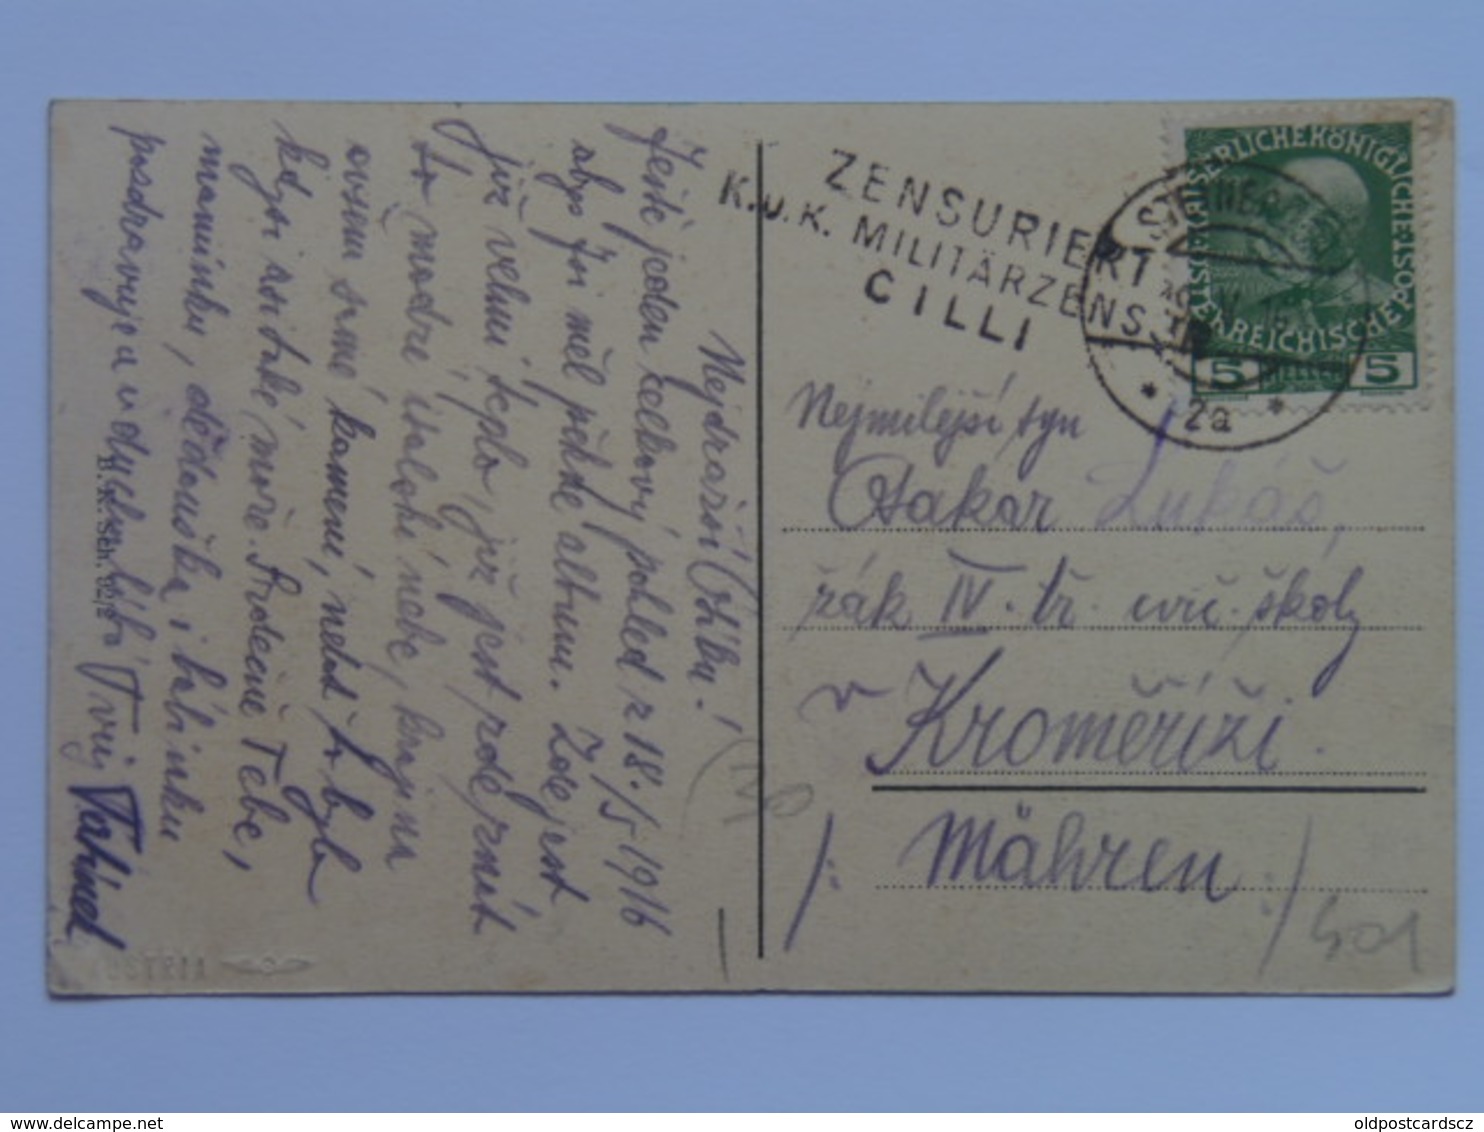 Nejdražší Otíku!
Ještě jeden celkový pohled z 18./5 1916
abys jsi měl pěkné album. Zde jest
již velmi teplo, již jest zde znát
to modré italské nebe, krajina
ovsem samé kamení, neboť to byla
kdysi asi také moře. Srdečně Tebe,
maminku, dědouška i bábinku
pozdravuje a v duchu líbá Tvůj Tatínek
B. K.
AUSTRIA
ZENSURIERT
K.u.K. MILITÄRZENS
CILLI
KAISERLICHEKÖNIGLICHE
ÖSTERREICHISCHE POST
5 HELLER 5
2a
Nejmilejší syn
Otakar Lukáš,
žák IV. tř. cvič. školy
v Kroměříži.
/: Mähren :/
501
www.delcampe.net
oldpostcardscz